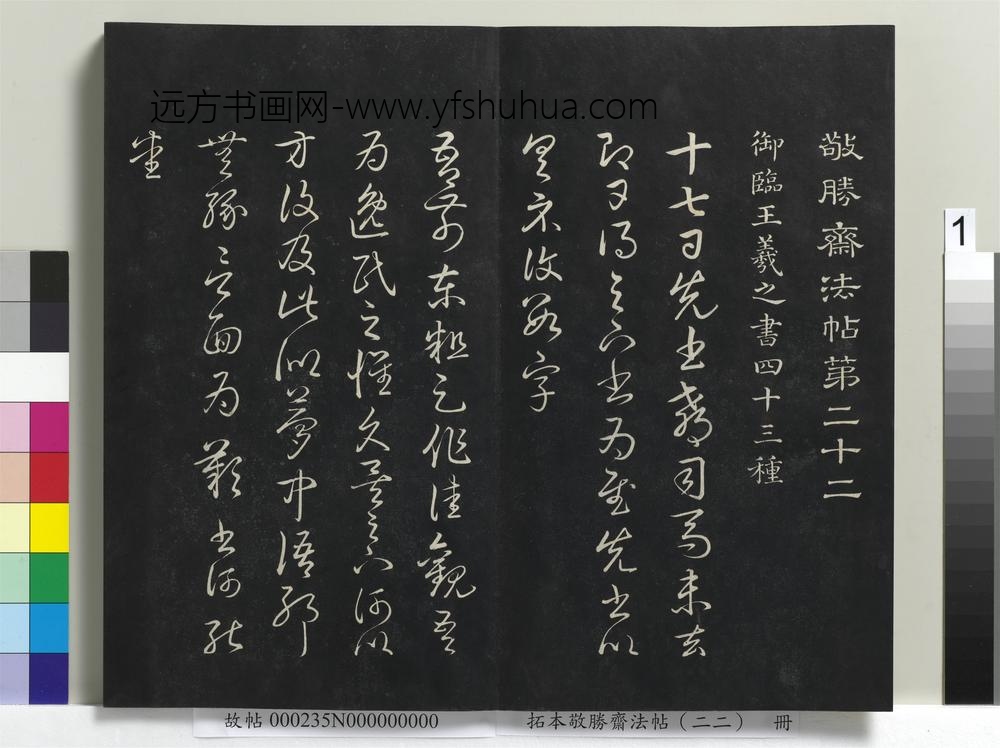 远方书画网-www.yfshuhua.com
敬勝齋法帖第二十二
御臨王羲之書四十三種
十七日先書郗司馬未去
即日得足下書為慰先書以
具示復數字
吾前東粗足作佳觀吾
為逸民之懷久矣足下何以
方復及此似夢中語耶
無緣言面為歎書何能
悉
1
故帖 000235N000000000
拓本敬勝齋法帖（二二） 冊